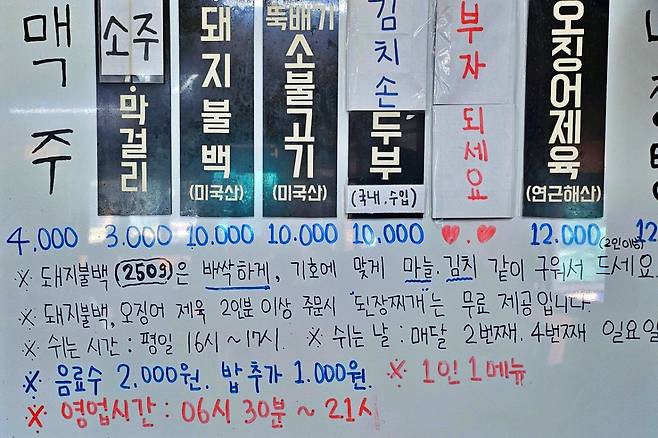 맥주
소주
·막걸리
돼지불백
(미국산)
뚝배기
소불고기
(미국산)
김치손
두부
(국내.수입)
부자
되세요
오징어제육
(연근해산)
4.000
3.000
10.000
10.000
10.000
♥.♥
12.000
(2인이상)
12
※ 돼지불백 (250g)은 바싹하게, 기호에 맞게 마늘.김치 같이 구워서 드세요.
※ 돼지불백, 오징어 제육 2인분 이상 주문시 "된장찌개"는 무료 제공입니다.
※ 쉬는 시간 : 평일 16시~17시. ※ 쉬는 날 : 매달 2번째. 4번째 일요일
※ 음료수 2.000원. 밥 추가 1.000원. ※ 1인 1메뉴
※ 영업시간 : 06시 30분 ~ 21시